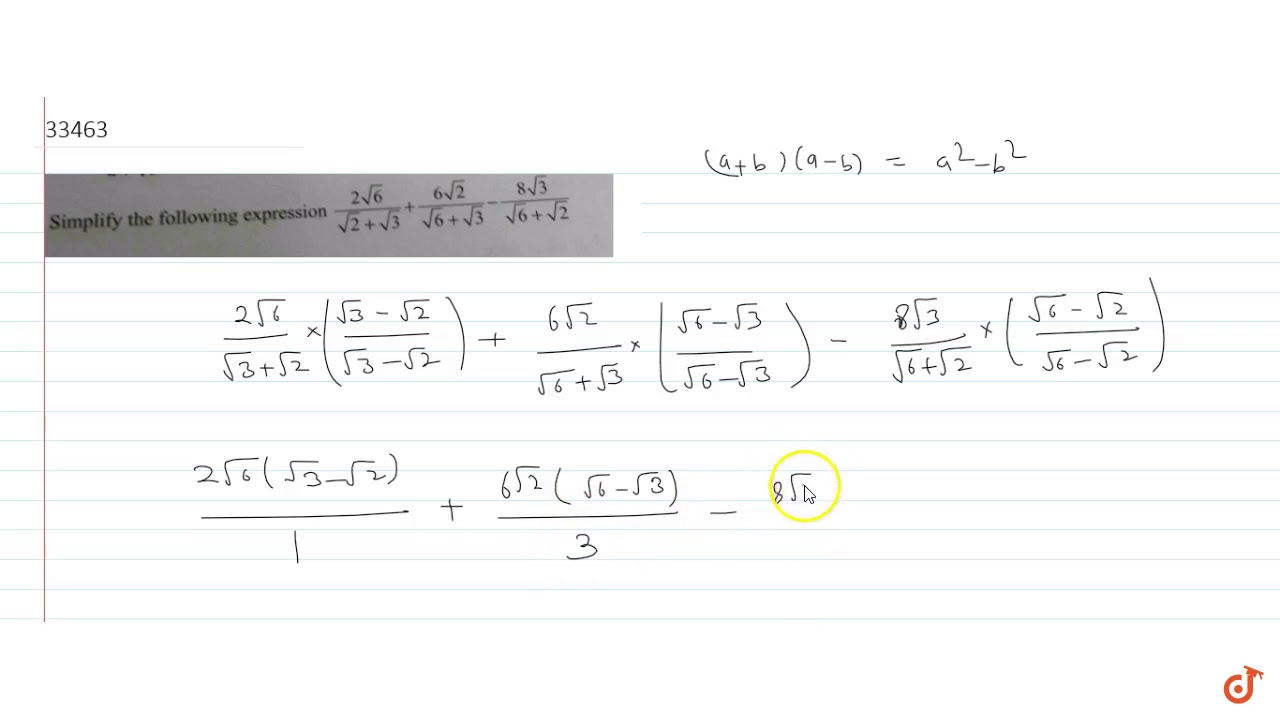 33463
(a+b)(a-b) = a²-b²
Simplify the following expression 2√6/(√2+√3) + 6√2/(√6+√3) - 8√3/(√6+√2)
2√6/(√3+√2) × ((√3-√2)/(√3-√2)) + 6√2/(√6+√3) × ((√6-√3)/(√6-√3)) - 8√3/(√6+√2) × ((√6-√2)/(√6-√2))
2√6(√3-√2)/1 + 6√2(√6-√3)/3 - 8√